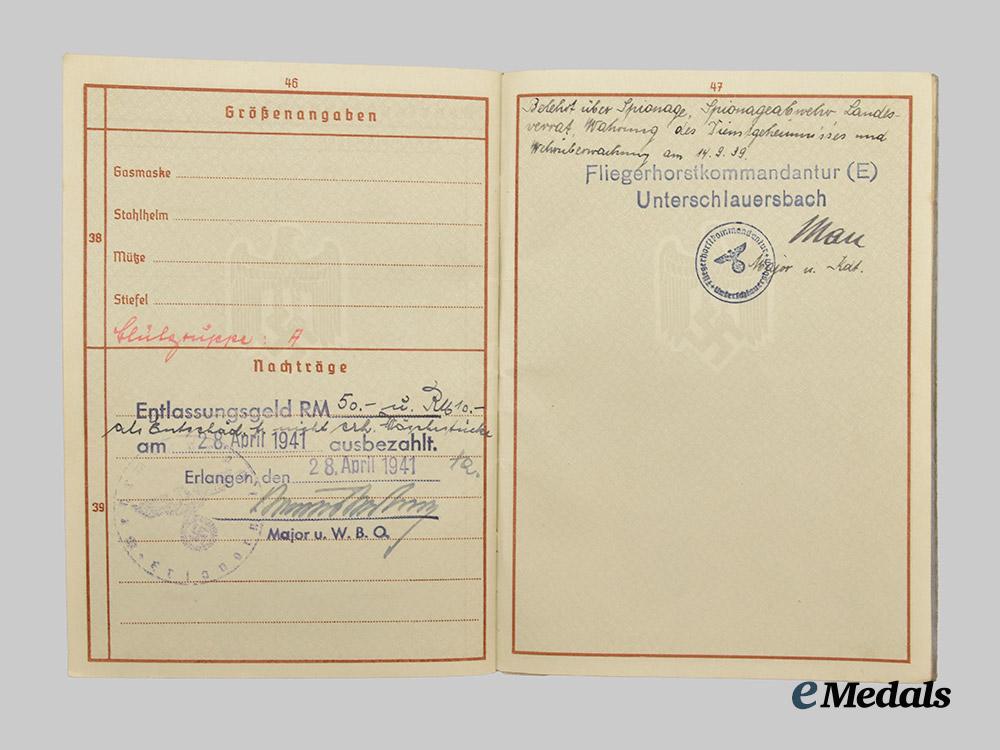 46
Größenangaben
38
Gasmaske
Stahlhelm
Mütze
Stiefel
Blutgruppe: A
Nachträge
39
Entlassungsgeld RM 50.- u. RM 10.-
als Entschäd. f. nicht erh. Wäschestücke
am 28. April 1941 ausbezahlt.
Erlangen, den 28. April 1941
Major u. W. B. O.
47
Belehrt über Spionage, Spionageabwehr, Landes-
verrat, Wahrung des Dienstgeheimnisses und
Wehrüberwachung am 14.9.39.
Fliegerhorstkommandantur (E)
Unterschlauersbach
Major u. Kdt.
Fliegerhorstkommandantur
Unterschlauersbach
eMedals